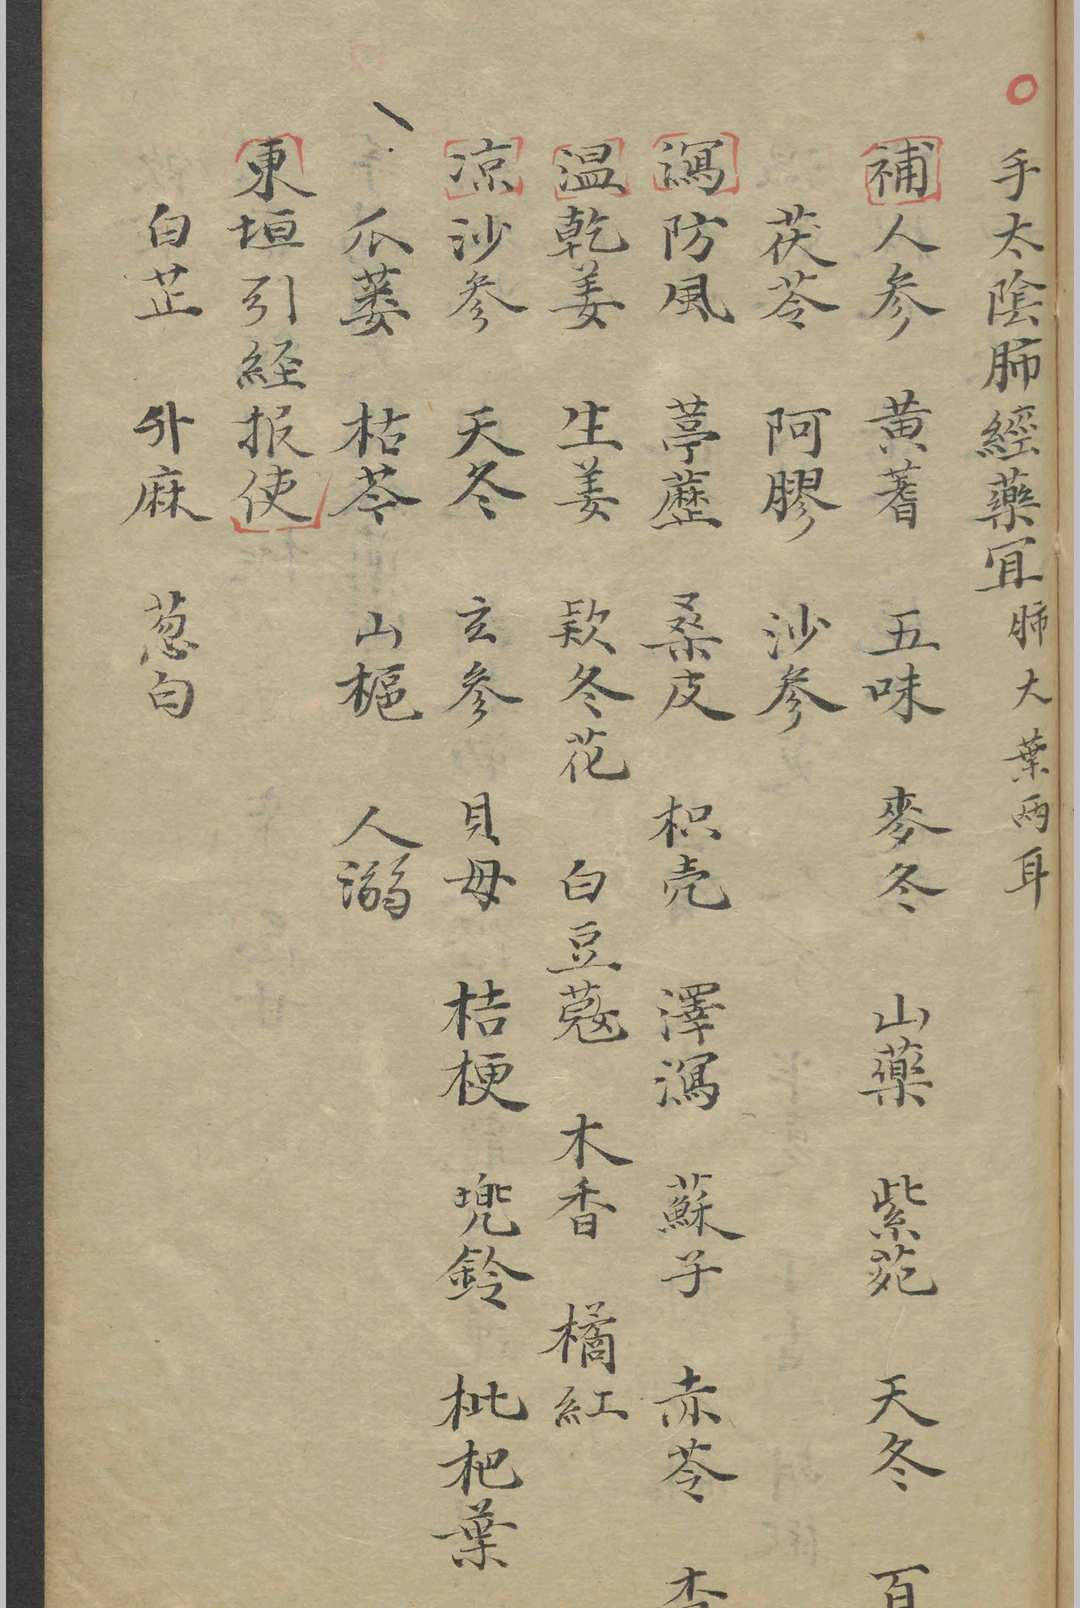 手太陰肺經藥宜肺大葉兩耳
補人參 黃蓍 五味 麥冬 山藥 紫菀 天冬 百
茯苓 阿膠 沙參
瀉防風 葶藶 桑皮 枳壳 澤瀉 蘇子 赤苓
温乾姜 生姜 欵冬花 白豆蔻 木香 橘紅
凉沙參 天冬 玄參 貝母 桔梗 兜鈴 枇杷葉
瓜蒌 枯芩 山梔 人溺
東垣引経报使
白芷 升麻 葱白